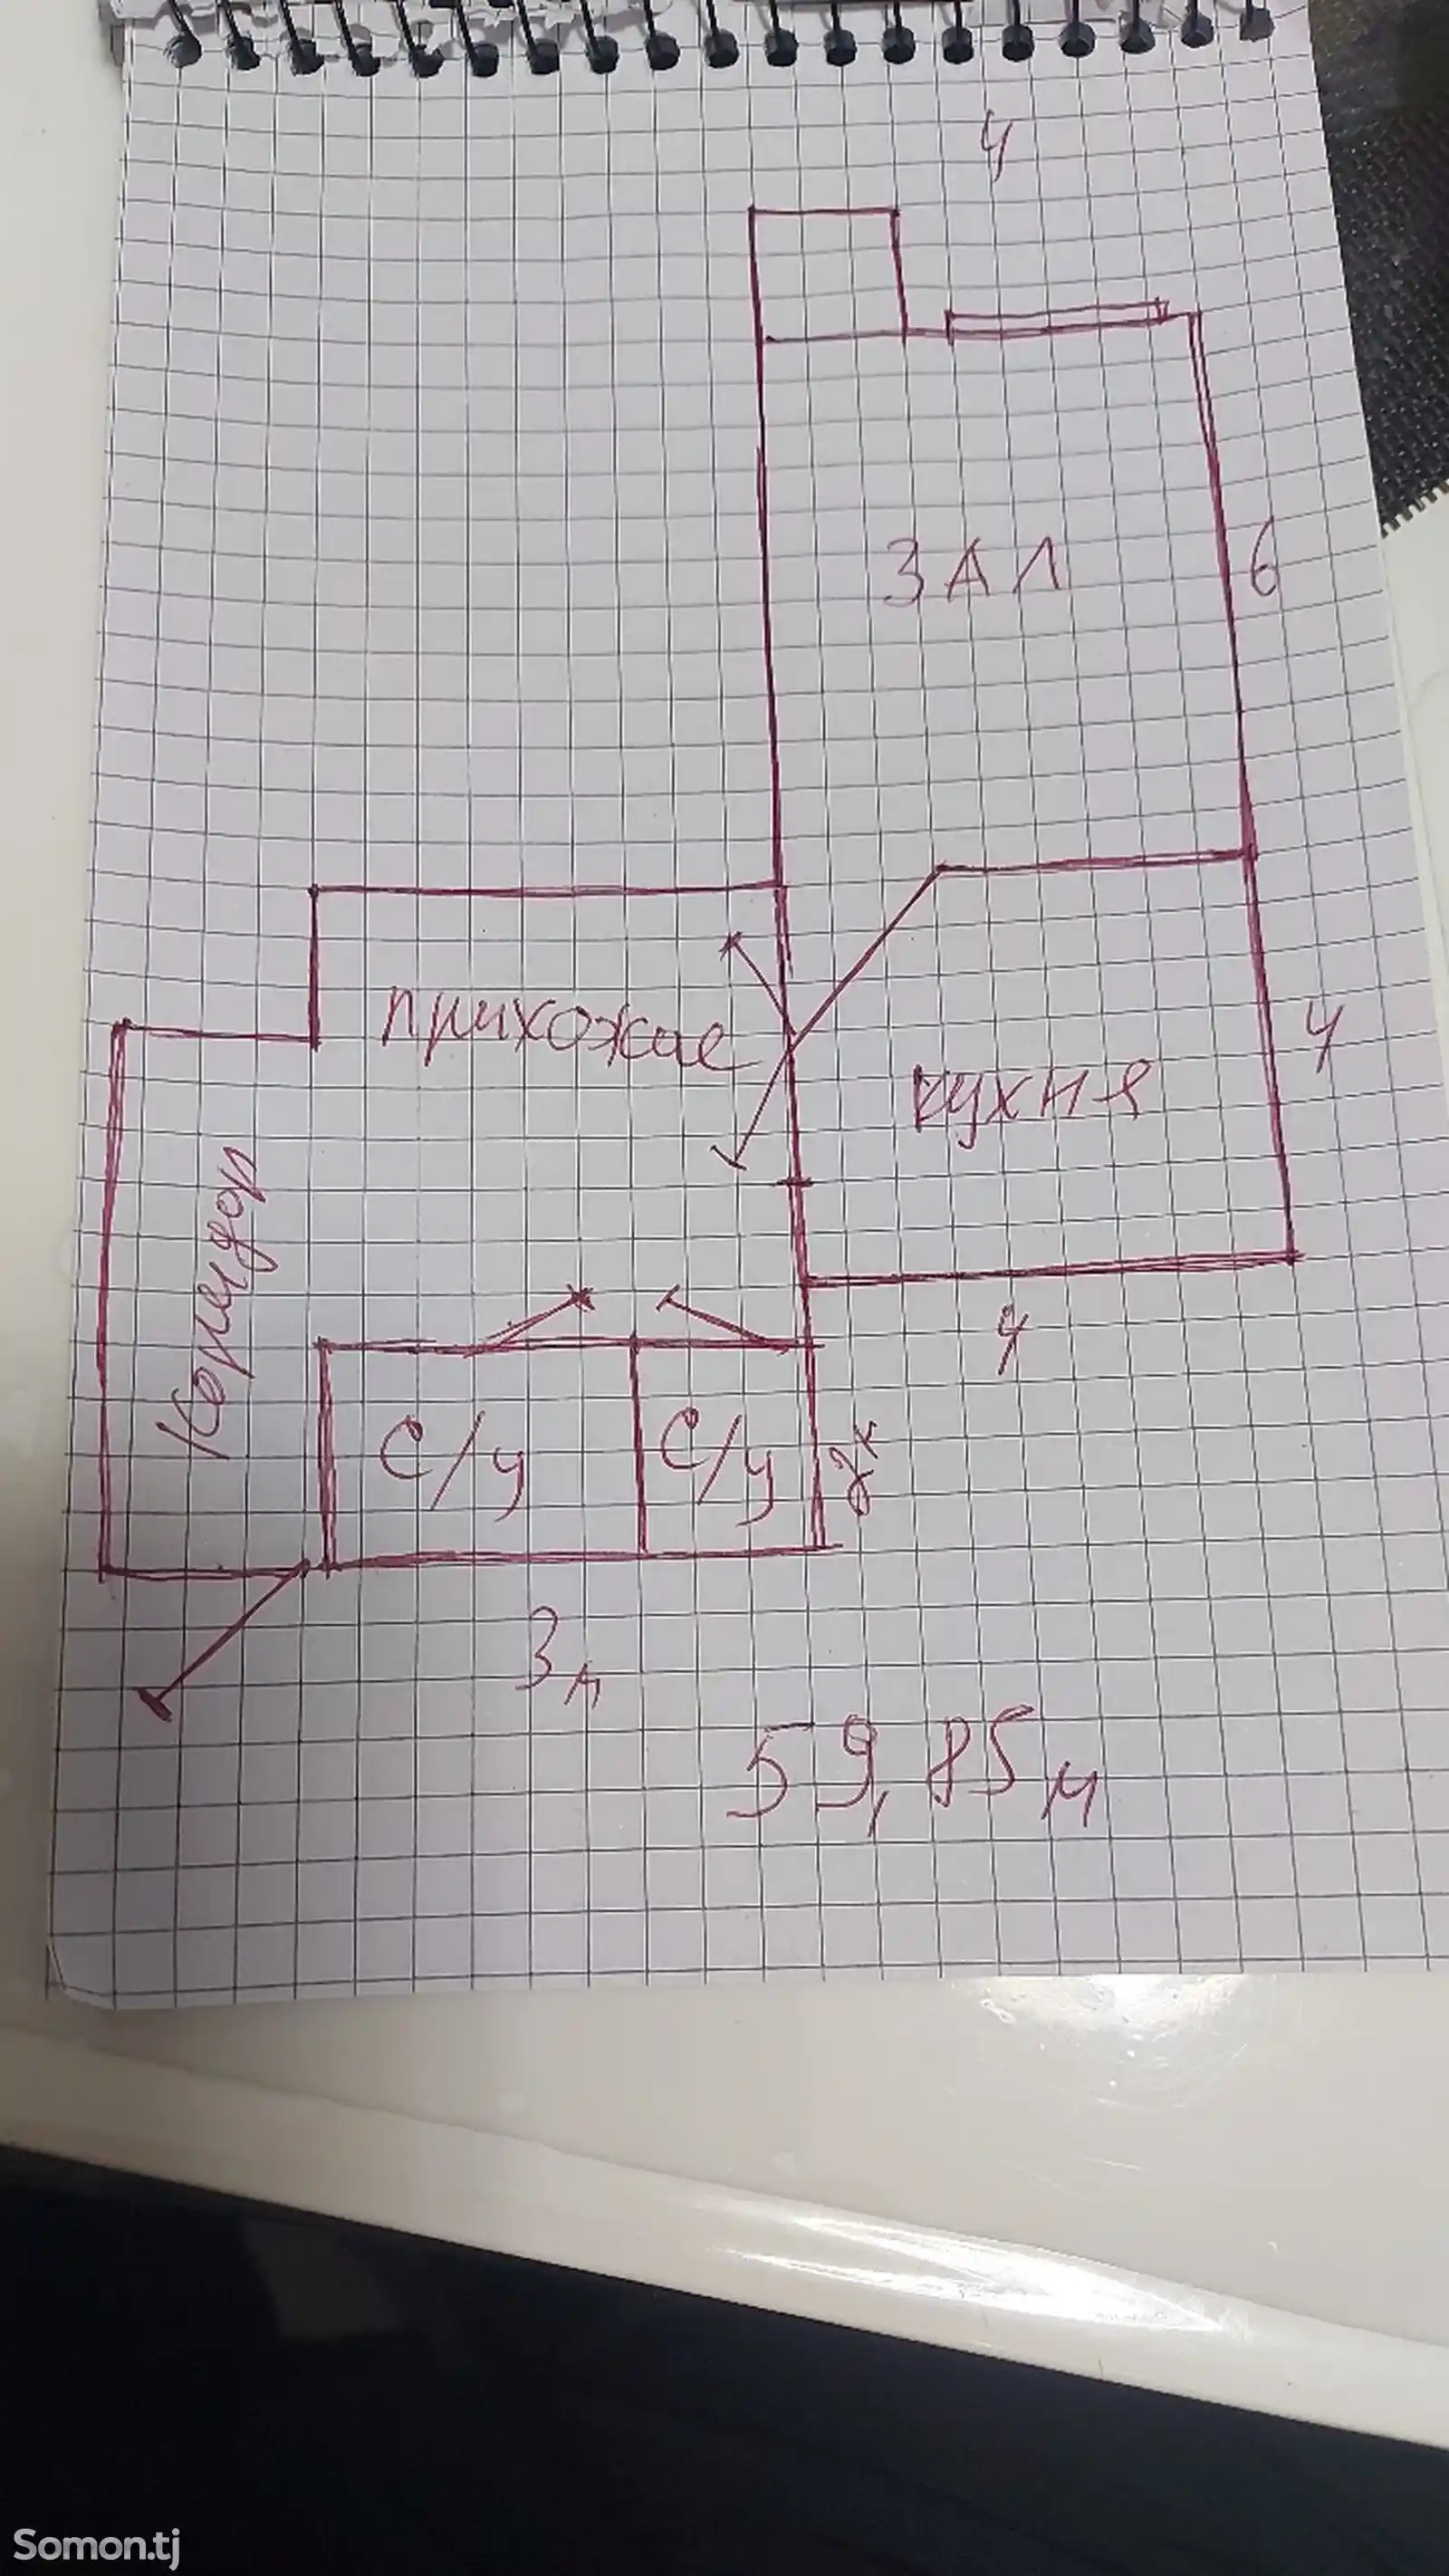 4
ЗАЛ
6
прихожае
кухня
4
Коридор
4
С/у
С/у
3м
59,85м
Somon.tj